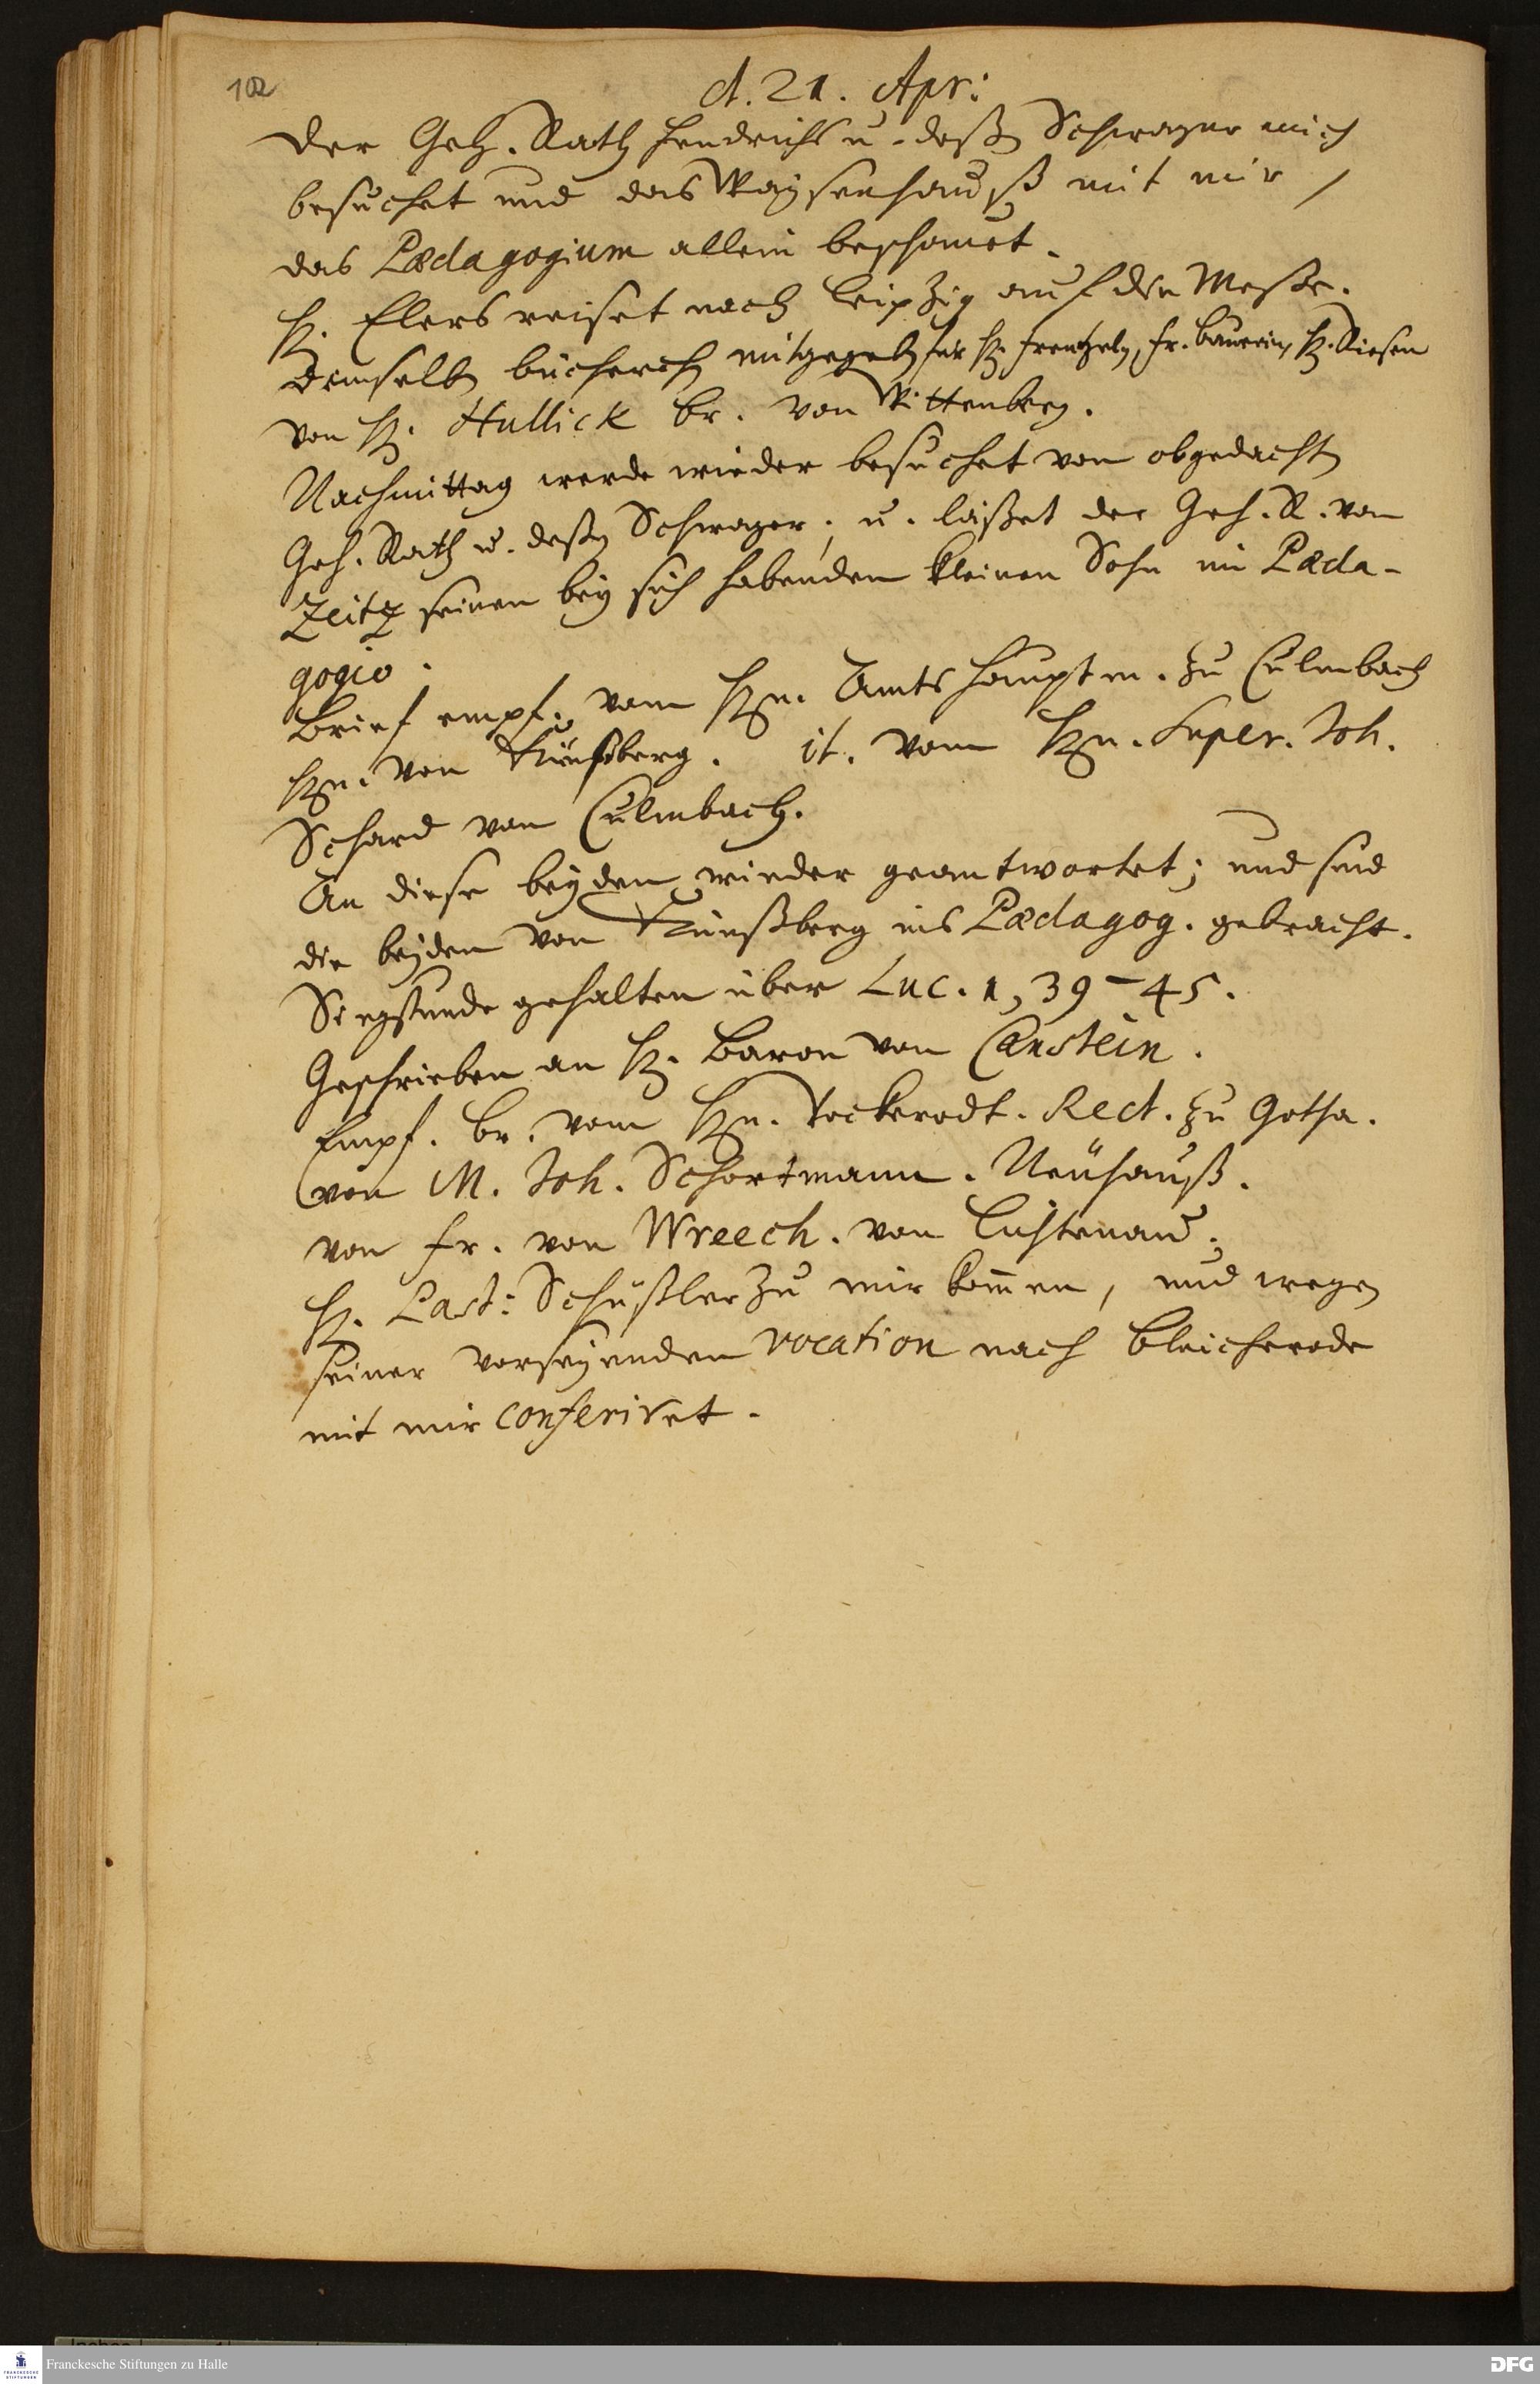 102
d. 21. Apr:
Der Geh. Rath Hendrichs u. deßen Schwager mich
besuchet und das Waysenhauß mit mir /
das Pædagogium allein beschauet.
H. Elers reiset nach Leipzig auf die Messe.
demselben bücherch mitgegeben für H. Frentzeln, Fr. Bauerin, H. Riesen
von H. Hullick br. von Wittenberg.
Nachmittag werde wieder besuchet von obgedachten
Geh. Rath u. deßen Schwager; u. läßet der Geh. R. von
Zeitz seinen bey sich habenden kleinen Sohn im Pæda-
gogio.
Brief empf. vom Hrn. Amtshauptm. zu Culmbach
Hrn. von Künßberg. it. vom Hrn. Super. Joh.
Schard von Culmbach.
An diese beyden wieder geantwortet; und sind
die beyden von Künßberg ins Pædagog. gebracht.
Singstunde gehalten über Luc. 1, 39-45.
Geschrieben an H. Baron von Canstein.
Empf. br. vom Hrn. Vockerodt. Rect. zu Gotha.
von M. Joh. Schortmann. Neuhauß.
von Fr. von Wreech. von Lichtenau.
H. Past: Schüßler zu mir kom̄en, und wegen
seiner vorseyenden vocation nach Bleicherode
mit mir conferiret.
Franckesche Stiftungen zu Halle
DFG